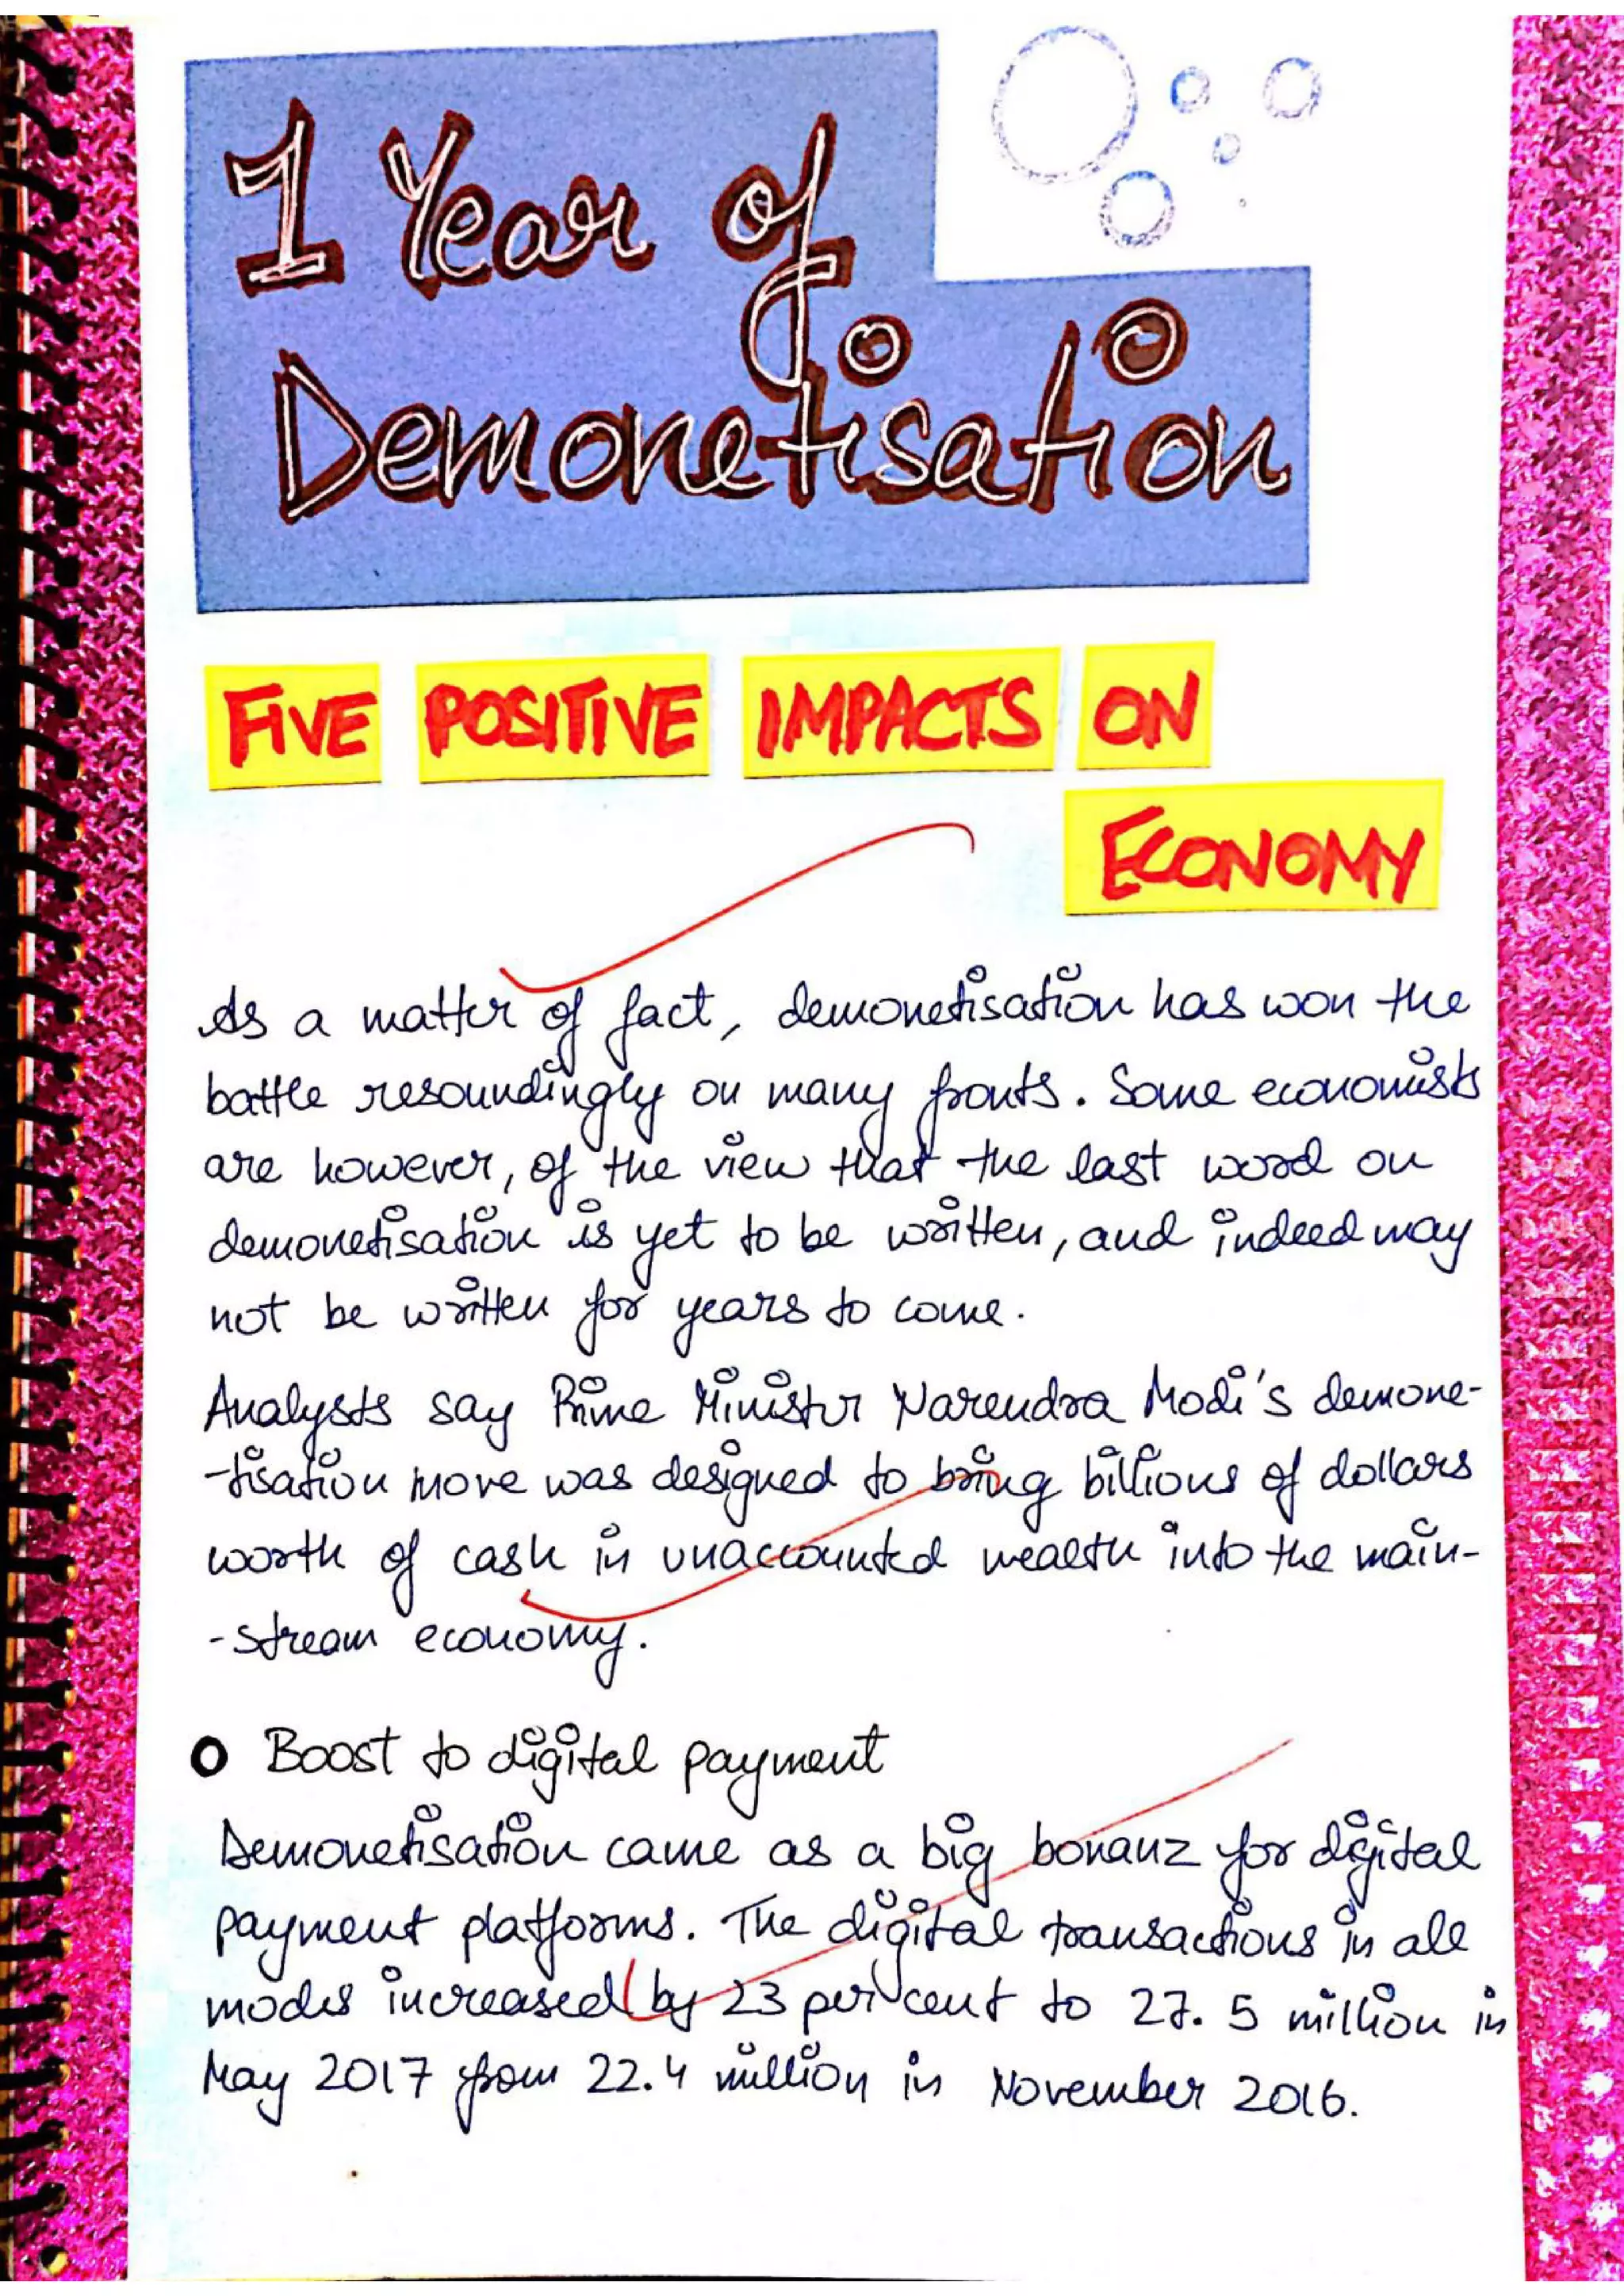 1 Year of
Demonetisation
FIVE POSITIVE IMPACTS ON
ECONOMY
As a matter of fact, demonetisation has won the
battle resoundingly on many fronts. Some economists
are however, of the view that the last word on
demonetisation is yet to be written, and indeed may
not be written for years to come.
Analysts say Prime Minister Narendra Modi's demone-
-tisation move was designed to bring billions of dollars
worth of cash in unaccounted wealth into the main-
-stream economy.
o Boost to digital payment
Demonetisation came as a big bonanz for digital
payment platforms. The digital transactions in all
modes increased by 23 per cent to 27. 5 million in
May 2017 from 22.4 million in November 2016.